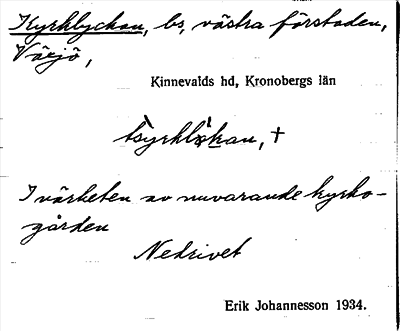 Kyrklyckan, bs, västra förstaden,
Växjö,
Kinnevalds hd, Kronobergs län
†
I närheten av nuvarande kyrko-
gården
Nedrivet
Erik Johannesson 1934.